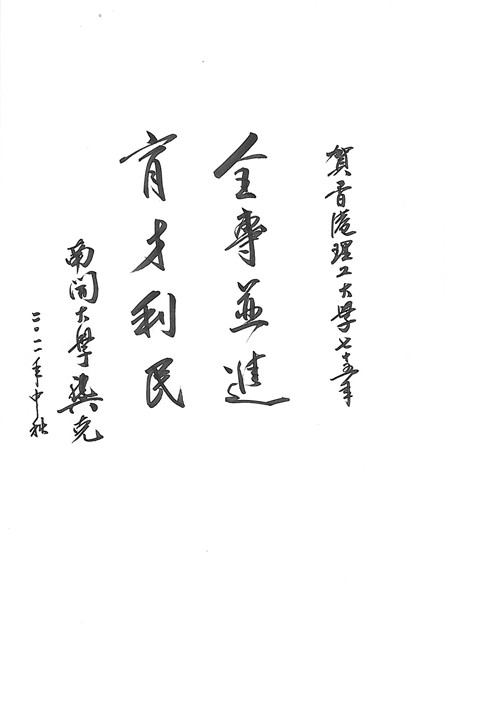 賀香港理工大學七十五年
全專並進
育才利民
南開大學龔克
二〇一二年中秋